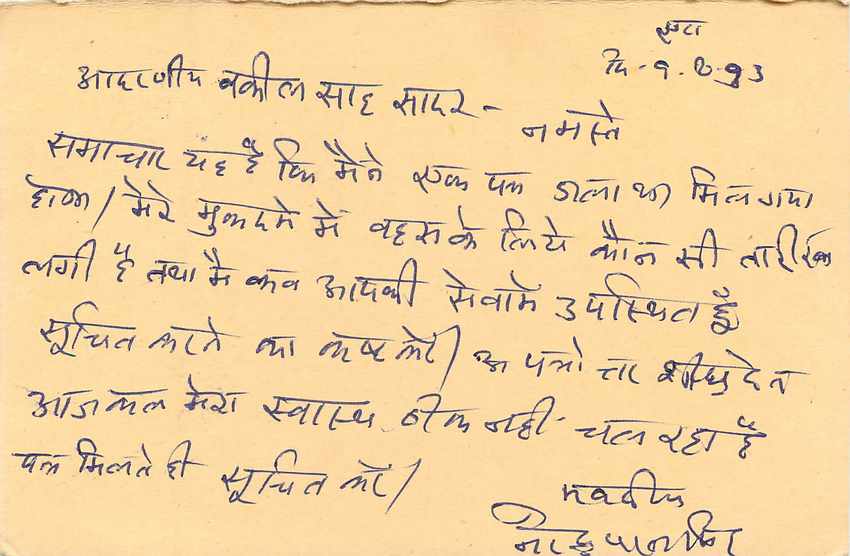 एटा
दि- १.२.९३
आदरणीय वकील साह सादर -
नमस्ते
समाचार यह है कि मैंने एक पत्र डाला था मिल गया
होगा / मेरे मुकदमे में वहस के लिये कौन सी तारीख
लगी है तथा मै कव आपकी सेवामें उपस्थित हूँ
सूचित करने का कष्ट करें / पत्रोत्तर शीघ्र देना
आजकल मेरा स्वास्थ ठीक नही चल रहा है
पत्र मिलते ही सूचित करें /
भवदीय